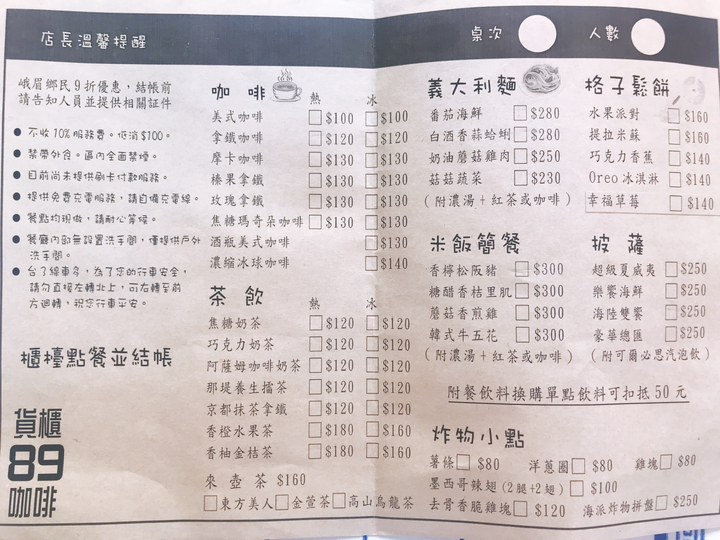 店長溫馨提醒
桌次
人數
峨眉鄉民9折優惠，結帳前
請告知人員並提供相關証件
● 不收10%服務費。低消$100。
● 禁帶外食。區內全面禁煙。
● 目前尚未提供刷卡付款服務。
● 提供免費充電服務，請自備充電線。
● 餐點均現做，請耐心等候。
● 餐廳內部無設置洗手間，僅提供戶外
洗手間。
● 台了線車多，為了您的行車安全，
請勿直接左轉北上，可右轉至前
方迴轉，祝您行車平安。
櫃檯點餐並結帳
貨櫃
89
咖啡
咖啡 熱 冰
美式咖啡 □$100 □$100
拿鐵咖啡 □$120 □$120
摩卡咖啡 □$130 □$130
榛果拿鐵 □$130 □$130
玫瑰拿鐵 □$130 □$130
焦糖瑪奇朵咖啡 □$130 □$130
酒瓶美式咖啡 □$130
濃縮冰球咖啡 □$140
茶飲 熱 冰
焦糖奶茶 □$120 □$120
巧克力奶茶 □$120 □$120
阿薩姆咖啡奶茶 □$120 □$120
那堤養生擂茶 □$120 □$120
京都抹茶拿鐵 □$120 □$120
香橙水果茶 □$180 □$160
香柚金桔茶 □$180 □$160
來壺茶 $160
□東方美人□金萱茶□高山烏龍茶
義大利麵
番茄海鮮 □$280
白酒香蒜蛤蜊 □$280
奶油蘑菇雞肉 □$250
菇菇蔬菜 □$230
(附濃湯+紅茶或咖啡)
格子鬆餅
水果派對 □$160
提拉米蘇 □$160
巧克力香蕉 □$140
Oreo冰淇淋 □$140
幸福草莓 □$140
米飯簡餐
香檸松阪豬 □$300
糖醋香桔里肌 □$300
蘑菇香煎雞 □$300
韓式牛五花 □$300
(附濃湯+紅茶或咖啡)
披薩
超級夏威夷 □$250
樂饗海鮮 □$250
海陸雙饗 □$250
豪華總匯 □$250
(附可爾必思汽泡飲)
附餐飲料換購單點飲料可扣抵50元
炸物小點
薯條□ $80 洋蔥圈□ $80 雞塊□ $80
墨西哥辣翅(2腿+2翅) □$100
去骨香脆雞塊□ $120 海派炸物拼盤□$250